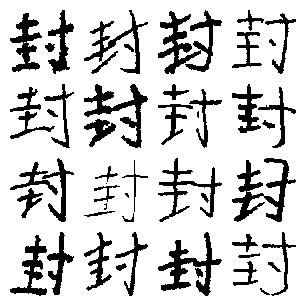 封封封封
封封封封
封封封封
封封封封